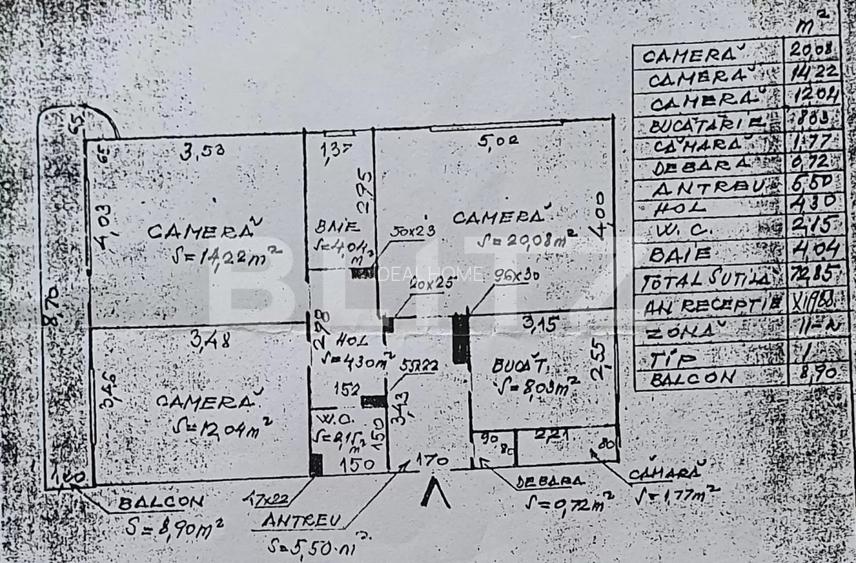 m²
CAMERĂ 20,08
CAMERĂ 14,22
CAMERĂ 12,04
BUCATARIE 8,03
CĂMARĂ 1,77
DEBARA 0,72
ANTREU 5,50
HOL 4,30
W.C. 2,15
BAIE 4,04
TOTAL S UTILĂ 72,85
AN RECEPTIE XI 1988
ZONĂ II-N
TIP 1
BALCON 8,90
65
65
3,53
1,37
5,02
4,03
295
4,00
CAMERĂ
S=14,22m²
BAIE
S=4,04m²
50x23
CAMERĂ
S=20,08m²
BLITZ
IDEAL HOME
20x25
96x30
8,70
3,48
298
HOL
S=4,30m²
3,15
BUCĂT.
S=8,03m²
2,55
55x22
3,45
CAMERĂ
S=12,04m²
152
3,43
W.C.
S=2,15m²
150
150
170
90
80
2,21
80
BALCON
S=8,90m²
47x22
ANTREU
S=5,50m²
DEBARA
S=0,72m²
CĂMARĂ
S=1,77m²